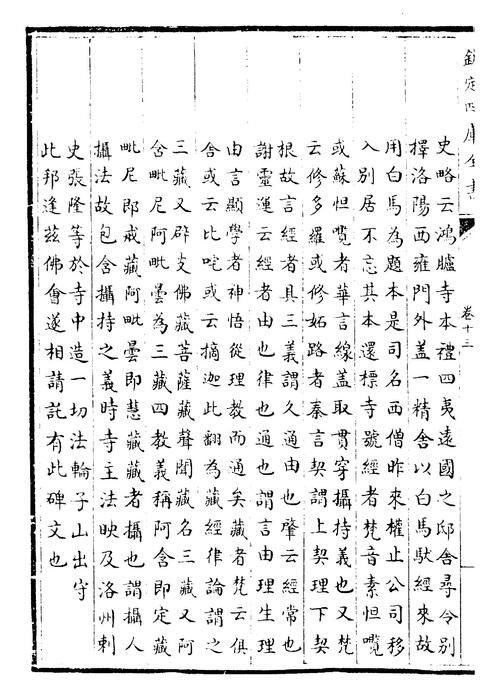 欽定四庫全書
卷十三
史略云鴻臚寺本禮四夷遠國之邸舍尋令别
擇洛陽西雍門外蓋一精舍以白馬馱經來故
用白馬為題本是司名西僧昨來權止公司移
入别居不忘其本還標寺號經者梵音素怛囕
或蘇怛囕者華言線蓋取貫穿攝持義也又梵
云修多羅或修妬路者秦言契謂上契理下契
根故言經者具三義謂久通由也肇云經常也
謝靈運云經者由也律也通也謂言由理生理
由言顯學者神悟從理教而通矣藏者梵云俱
舍或云比咤或云摘迦此翻為藏經律論謂之
三藏又辟支佛藏菩薩藏聲聞藏名三藏又阿
含毗尼阿毗曇為三藏四教義稱阿含即定藏
毗尼即戒藏阿毗曇即慧藏藏者攝也謂攝人
攝法故包含攝持之義時寺主法映及洛州刺
史張隆等於寺中造一切法輪子山出守
此邦逢兹佛會遂相請託有此碑文也